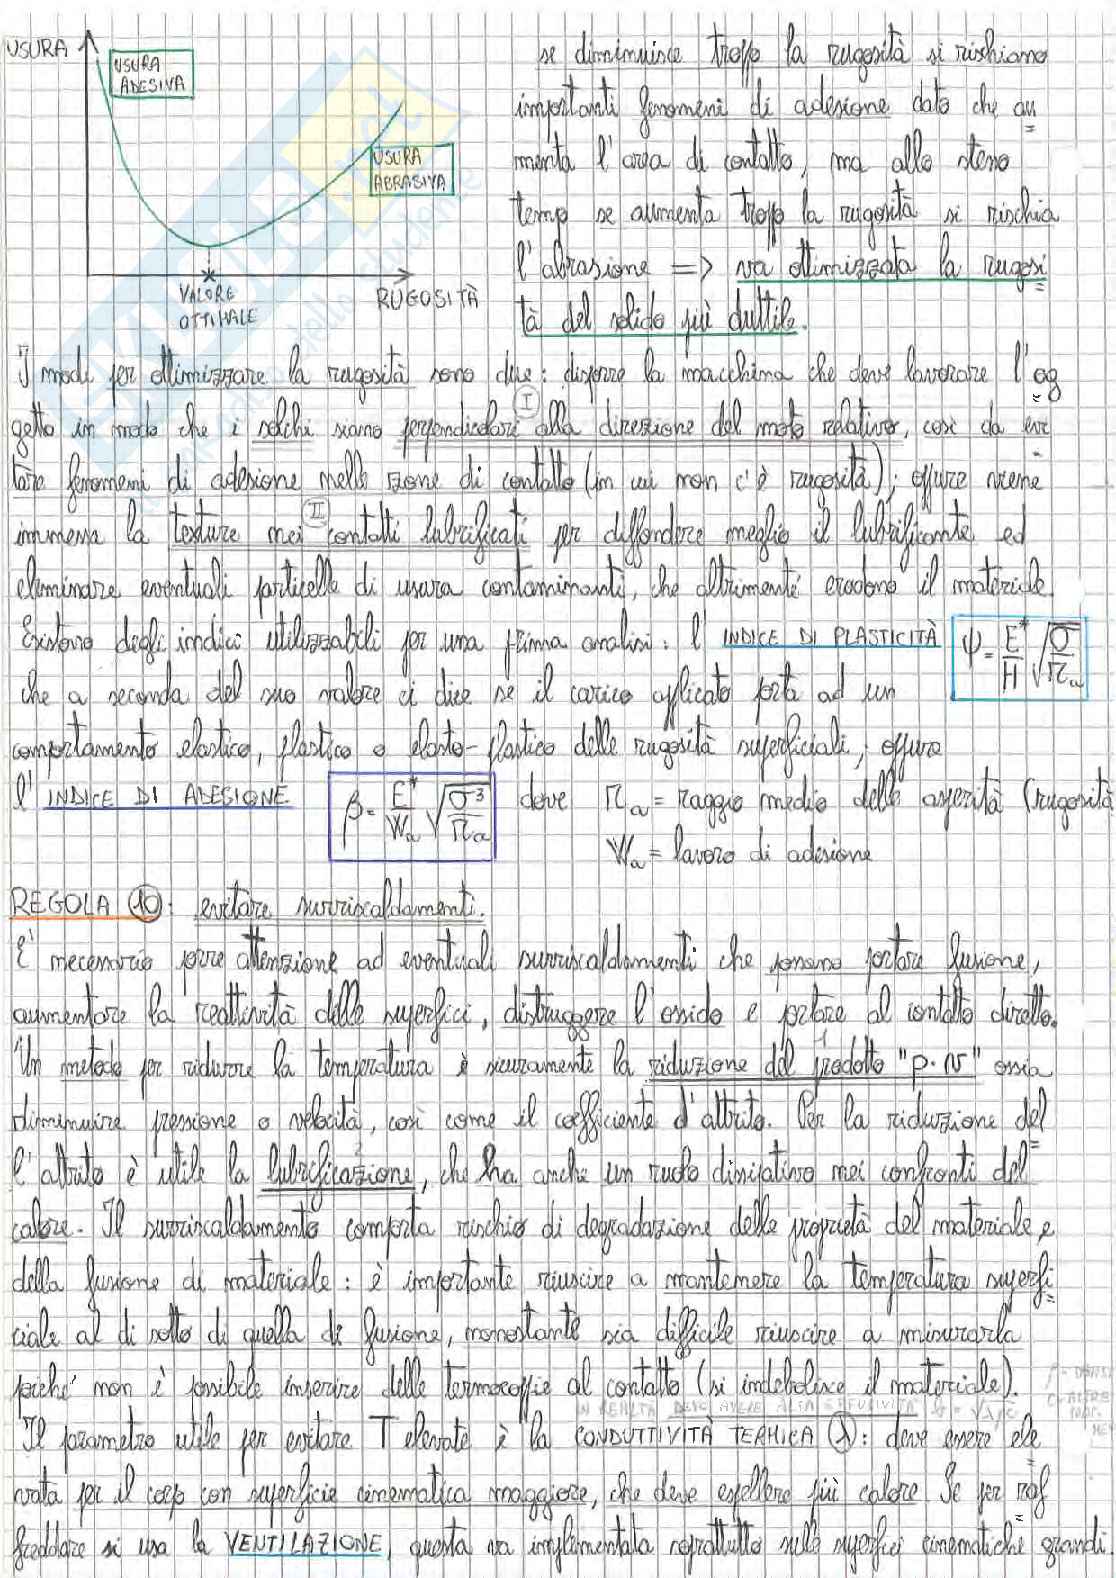 USURA
USURA
ADESIVA
USURA
ABRASIVA
VALORE
OTTIMALE
RUGOSITÀ
se diminuisce troppo la rugosità si rischiano
importanti fenomeni di adesione dato che au
menta l'area di contatto, ma allo stesso
tempo se aumenta troppo la rugosità si rischia
l'abrasione => va ottimizzata la rugosi
tà del solido più duttile.
I modi per ottimizzare la rugosità sono due: disporre la macchina che deve lavorare l'og
getto in modo che i solchi siano perpendicolari I alla direzione del moto relativo, così da evi
tare fenomeni di adesione nelle zone di contatto (in cui non c'è rugosità); oppure viene
immessa la texture nei II contatti lubrificati per diffondere meglio il lubrificante ed
eliminare eventuali particelle di usura contaminanti, che altrimenti erodono il materiale.
Esistono degli indici utilizzabili per una prima analisi: l'INDICE DI PLASTICITÀ ψ = E*/H √(σ/r_a)
che a seconda del suo valore ci dice se il carico applicato porta ad un
comportamento elastico, plastico o elasto-plastico delle rugosità superficiali; oppure
l'INDICE DI ADESIONE β = E*/W_a √(σ³/r_a) dove r_a = raggio medio delle asperità (rugosità
W_a = lavoro di adesione
REGOLA 10: evitare surriscaldamenti.
E' necessario porre attenzione ad eventuali surriscaldamenti che possono portare fusione,
aumentare la reattività delle superfici, distruggere l'ossido e portare al contatto diretto.
Un metodo per ridurre la temperatura è sicuramente la riduzione del 1 prodotto "p·v" ossia
diminuire pressione o velocità, così come il coefficiente d'attrito. Per la riduzione del
l'attrito è utile la lubrificazione 2, che ha anche un ruolo dissipativo nei confronti del
calore. Il surriscaldamento comporta rischio di degradazione delle proprietà del materiale e
della fusione di materiale: è importante riuscire a mantenere la temperatura superfi
ciale al di sotto di quella di fusione, nonostante sia difficile riuscire a misurarla
poiché non è possibile inserire delle termocoppie al contatto (si indebolisce il materiale).
IN REALTÀ DEVE AVERE ALTA EFFUSIVITÀ = √λρc
Il parametro utile per evitare T elevate è la CONDUTTIVITÀ TERMICA (λ): deve essere ele
vata per il corpo con superficie cinematica maggiore, che deve espellere più calore. Se per raf
freddare si usa la VENTILAZIONE, questa va implementata soprattutto sulle superfici cinematiche grandi.